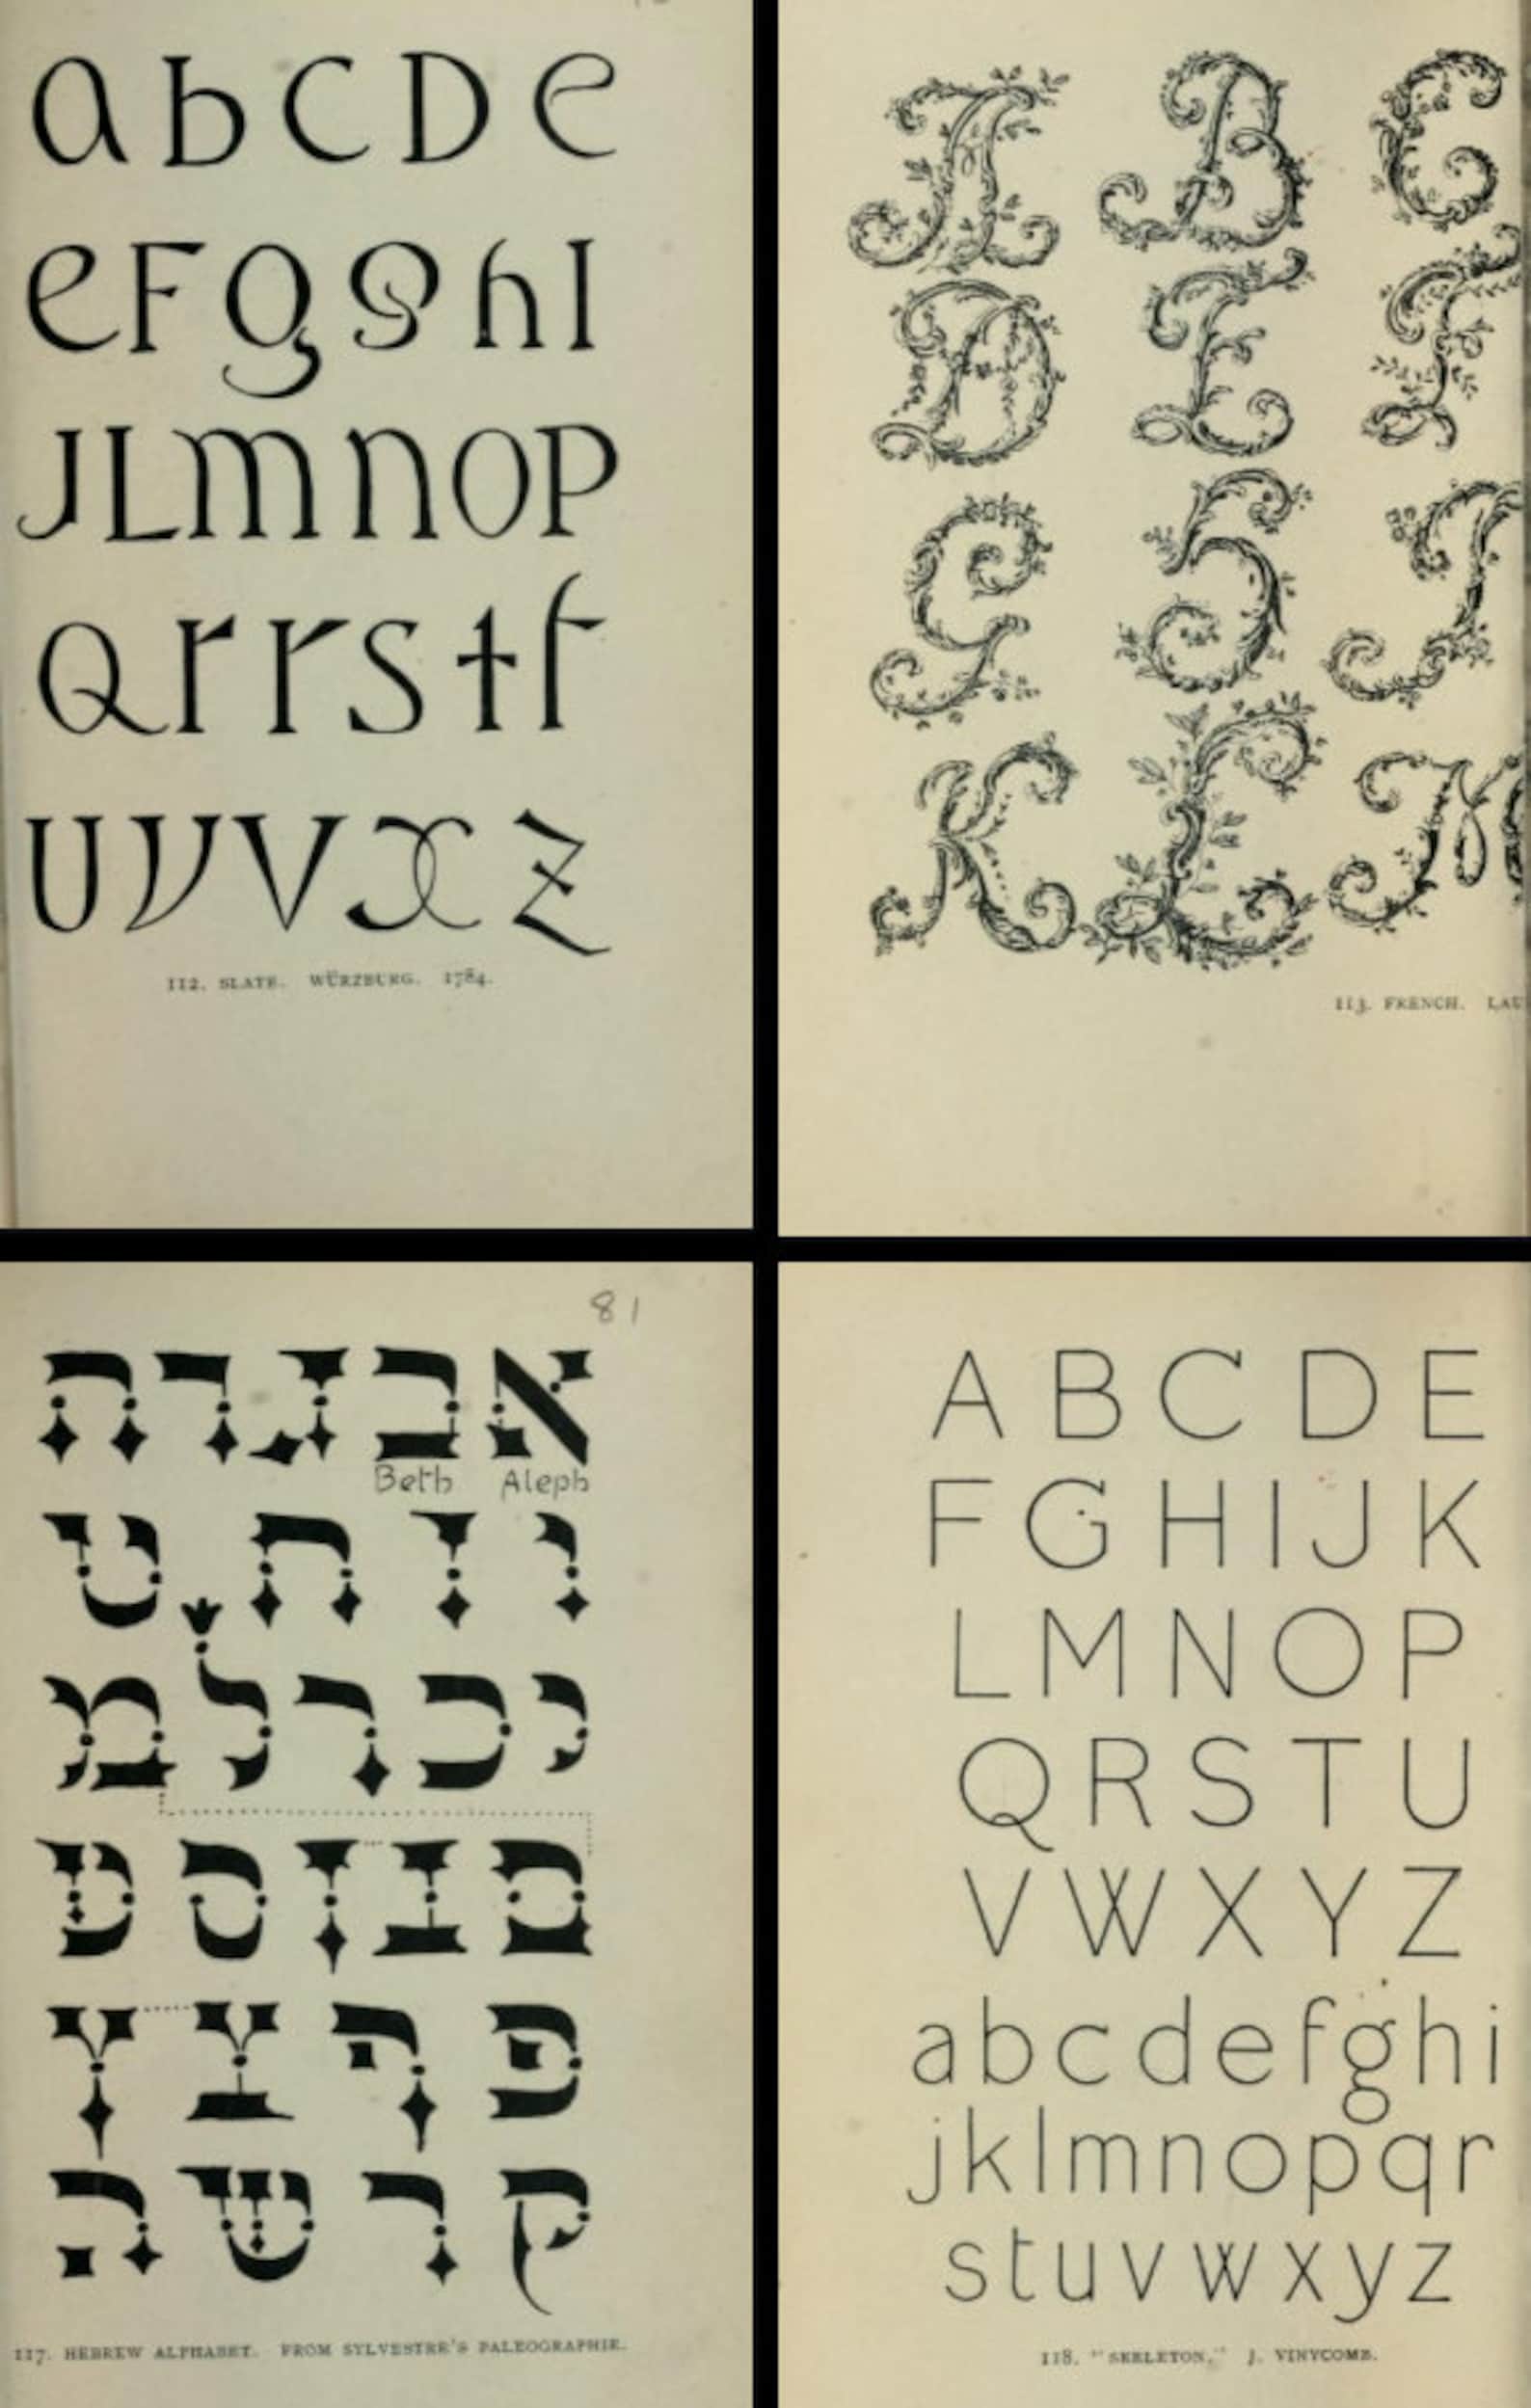 a b c D e
e F g g h I
J L m n o P
Q r r s t f
U V V X Z
112. SLATE. WÜRZBURG. 1784.
A B C
D E F
G H J
K L M
113. FRENCH. LAU
81
א ב ג ד ה
Beth Aleph
ו ז ח ט
י כ ך ל מ
ם נ ן ס ע
פ ף צ ץ
ק ר ש ת
117. HEBREW ALPHABET. FROM SYLVESTRE'S PALEOGRAPHIE.
A B C D E
F G H I J K
L M N O P
Q R S T U
V W X Y Z
a b c d e f g h i
j k l m n o p q r
s t u v w x y z
118. "SKELETON." J. VINYCOMB.